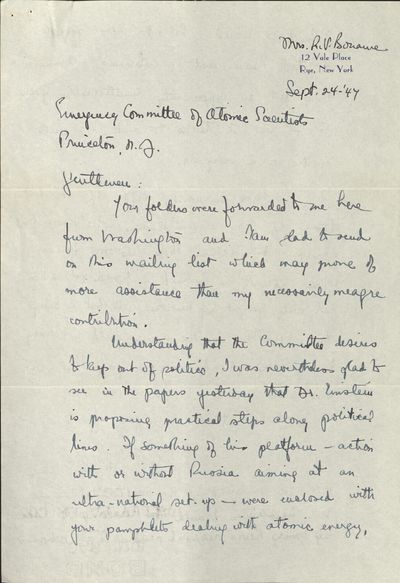 Mrs. R. V. Boname
12 Vale Place
Rye, New York
Sept. 24-'47
Emergency Committee of Atomic Scientists
Princeton, N. J.
Gentlemen:
Your folders were forwarded to me here
from Washington and I am glad to send
on this mailing list which may prove of
more assistance than my necessarily meagre
contribution.
Understanding that the Committee desires
to keep out of politics, I was nevertheless glad to
see in the papers yesterday that Dr. Einstein
is proposing practical steps along political
lines. If something of his platform - action
with or without Russia aiming at an
ultra-national set-up - were enclosed with
your pamphlets dealing with atomic energy,